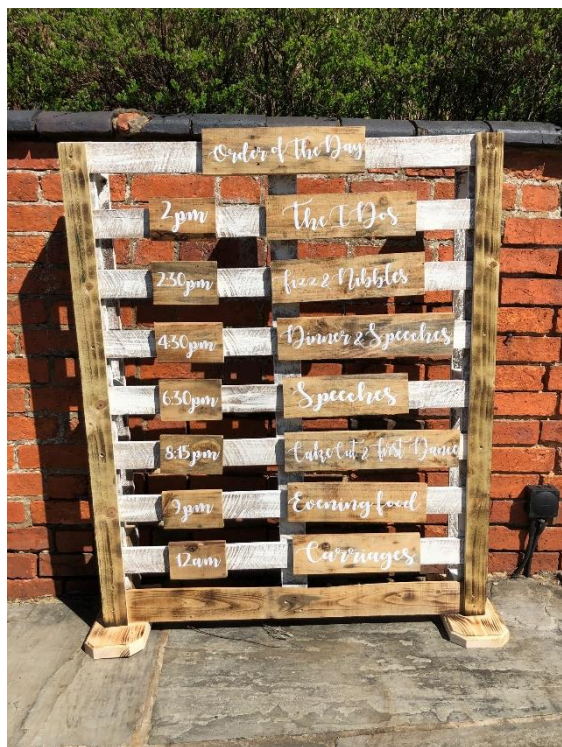 Order of The Day
2pm The I Dos
2:30pm fizz & Nibbles
4:30pm Dinner & Speeches
6:30pm Speeches
8:15pm Cake Cut & first Dance
9pm Evening food
12am Carriages